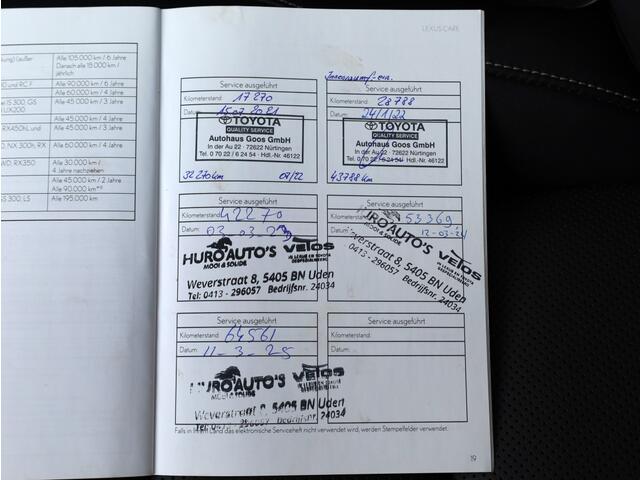 LEXUS CARE
Alle 105.000 km / 6 Jahre
Danach alle 15.000 km /
jährlich
Alle 90.000 km / 6 Jahre
Alle 60.000 km / 4 Jahre
Alle 45.000 km / 3 Jahre
Alle 45.000 km / 3 Jahre
Alle 60.000 km / 4 Jahre
Alle 30.000 km /
4 Jahre nachprüfen
Alle 45.000 km / 2 Jahre
Alle 90.000 km
Alle 195.000 km
Service ausgeführt
Kilometerstand: 17 270
Datum: 15.07.2021
TOYOTA
QUALITY SERVICE
Autohaus Goos GmbH
In der Au 22 · 72622 Nürtingen
Tel. 0 70 22 / 6 24 54 · Hdl.-Nr. 46122
32 270 km 09/22
Service ausgeführt
Kilometerstand: 28 788
Datum: 24/1/22
TOYOTA
QUALITY SERVICE
Autohaus Goos GmbH
In der Au 22 · 72622 Nürtingen
Tel. 0 70 22 / 6 24 54 · Hdl.-Nr. 46122
43788 km
Service ausgeführt
Kilometerstand: 42270
Datum: 02-03-23
HURO AUTO'S VETOS
MOOI & SOLIDE
Weverstraat 8, 5405 BN Uden
Tel: 0413 - 296057 Bedrijfsnr. 24034
Service ausgeführt
Kilometerstand: 53369
Datum: 12-03-24
HURO AUTO'S VETOS
MOOI & SOLIDE
Weverstraat 8, 5405 BN Uden
Tel: 0413 - 296057 Bedrijfsnr. 24034
Service ausgeführt
Kilometerstand: 64561
Datum: 11-3-25
HURO AUTO'S VETOS
Weverstraat 8, 5405 BN Uden
Service ausgeführt
Kilometerstand:
Datum:
Falls in Ihrem Land das elektronische Serviceheft nicht verwendet wird, werden Stempelfelder verwendet.
19